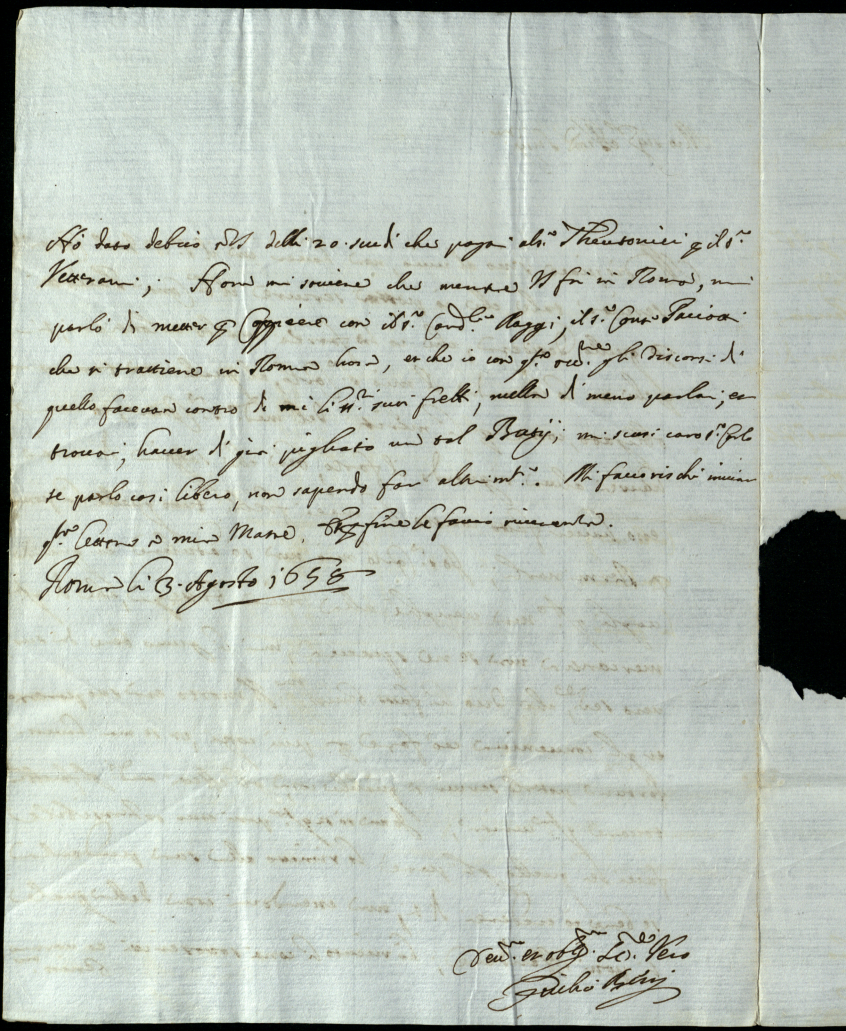 Hò dato debito VS delli 20. scudi che pagai al s.r Theutonici p il s.r
Vetterani; Hora mi soviene che mentre VS fù in Roma, mi
parlò di metter p Coppiere con il s.r Card.le Raggi, il s.r Conte Paciotti
che si trattiene in Roma hora, et che io con q.to gli discorsi di
quello facevan contro di mè li ss.ri suoi frelli, nella di meno parlai, et
trovai, haver di già pigliato un tal Busij; mi scusi caro s.r Carlo
se parlo così libero, non sapendo far altrim.te. Mi facci inviar
q.ta lettera a mia Madre. fine le faccio riverenza.
Roma li 3. Agosto 1658
Dev.mo et obl.mo Vero
Giulio